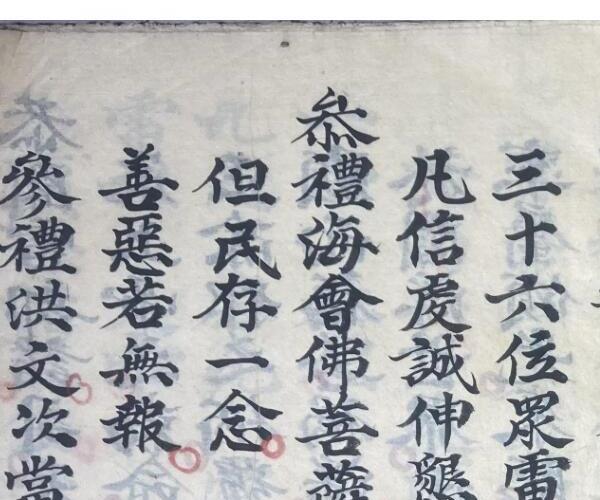 三十六位眾雷
凡信虔誠伸懇
叅禮海會佛菩薩
但民存一念
善惡若無報
參禮洪文次當